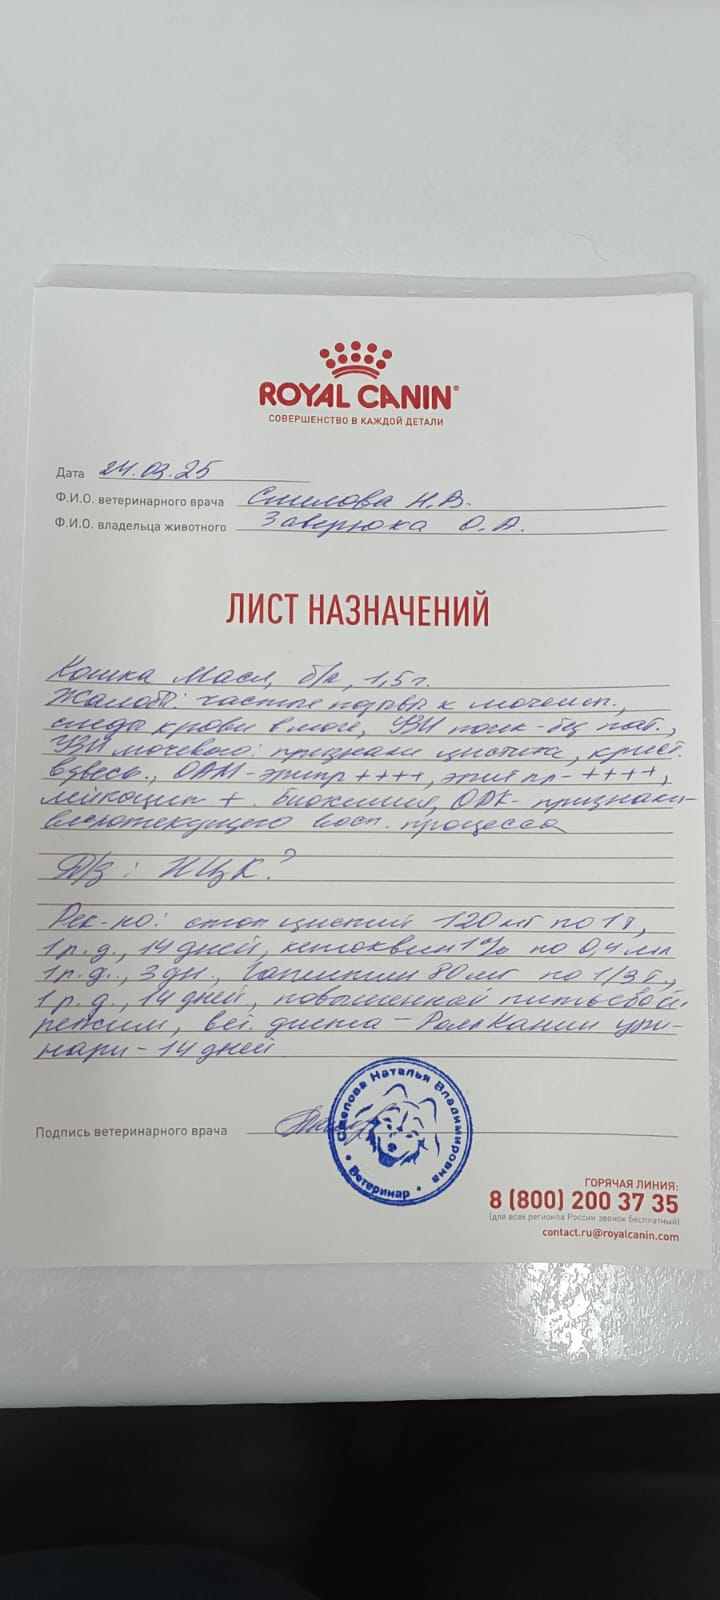 ROYAL CANIN
СОВЕРШЕНСТВО В КАЖДОЙ ДЕТАЛИ
Дата 24.03.25
Ф.И.О. ветеринарного врача Смелова Н.В.
Ф.И.О. владельца животного Заверюка О.А.
ЛИСТ НАЗНАЧЕНИЙ
Кошка Мася, б/п, 1,5 г.
Жалобы: частые позывы к мочеисп.,
следы крови в моче, УЗИ почек - без пат.,
УЗИ мочевого: признаки цистита, крист.
взвесь., ОАМ - эритр ++++, эпит пл - ++++,
лейкоцит +. Биохимия, ОАК - признаки
вялотекущего восп. процесса
Д/з: ИЦК?
Рек-но: стоп цистит 120 мг по 1 т,
1 р. д., 14 дней, кетоквин 1% по 0,4 мл
1 р. д., 3 дн., 80 мг по 1/3 т.,
1 р. д., 14 дней, повышенный питьевой
режим, вет. диета - Роял Канин ури-
нари - 14 дней
Подпись ветеринарного врача
Смелова Наталья Владимировна
Ветеринар
ГОРЯЧАЯ ЛИНИЯ:
8 (800) 200 37 35
(для всех регионов России звонок бесплатный)
contact.ru@royalcanin.com